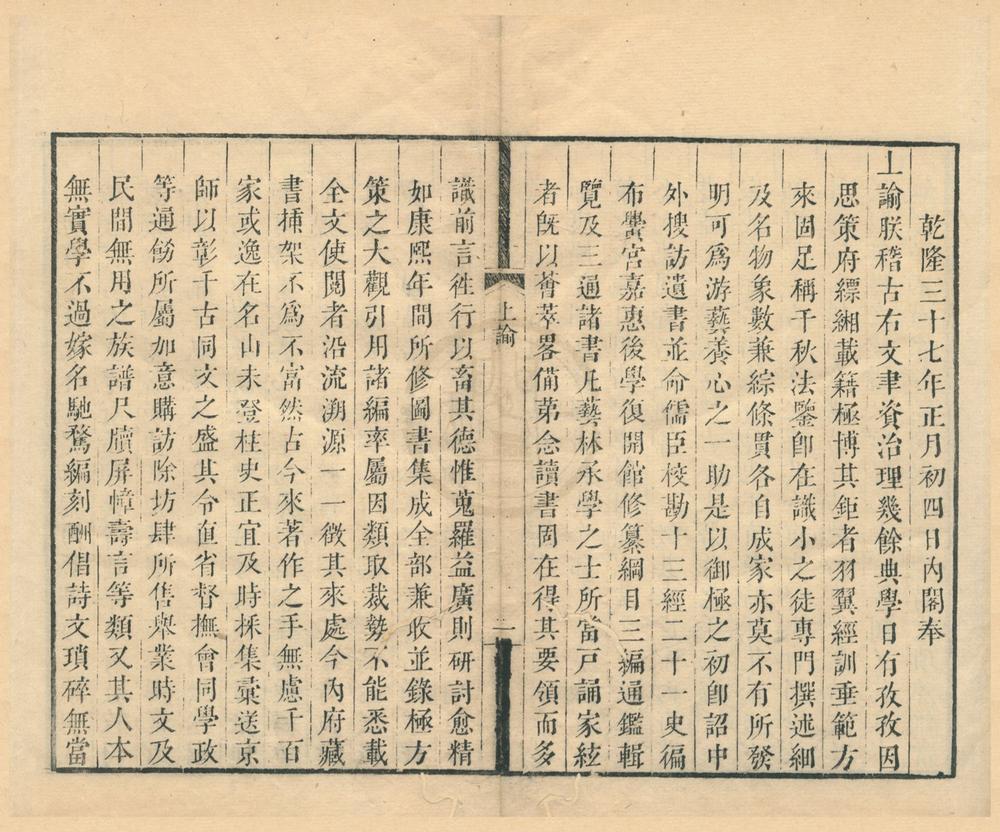 乾隆三十七年正月初四日內閣奉
上諭朕稽古右文聿資治理幾餘典學日有孜孜因
思策府縹緗載籍極博其鉅者羽翼經訓垂範方
來固足稱千秋法鑒卽在識小之徒專門撰述細
及名物象數兼綜條貫各自成家亦莫不有所發
明可爲游藝養心之一助是以御極之初卽詔中
外搜訪遺書並命儒臣校勘十三經二十一史徧
布黌宮嘉惠後學復開館修纂綱目三編通鑑輯
覽及三通諸書凡藝林承學之士所當戸誦家絃
者旣以薈萃畧備第念讀書固在得其要領而多
上諭
一
識前言徃行以畜其德惟蒐羅益廣則研討愈精
如康熙年間所修圖書集成全部兼收並錄極方
策之大觀引用諸編率屬因類取裁勢不能悉載
全文使閱者沿流溯源一一徵其來處今內府藏
書揷架不爲不富然古今來著作之手無慮千百
家或逸在名山未登柱史正宜及時採集彚送京
師以彰千古同文之盛其令直省督撫會同學政
等通飭所屬加意購訪除坊肆所售舉業時文及
民間無用之族譜尺牘屏幛壽言等類又其人本
無實學不過嫁名馳騖編刻酬倡詩文瑣碎無當